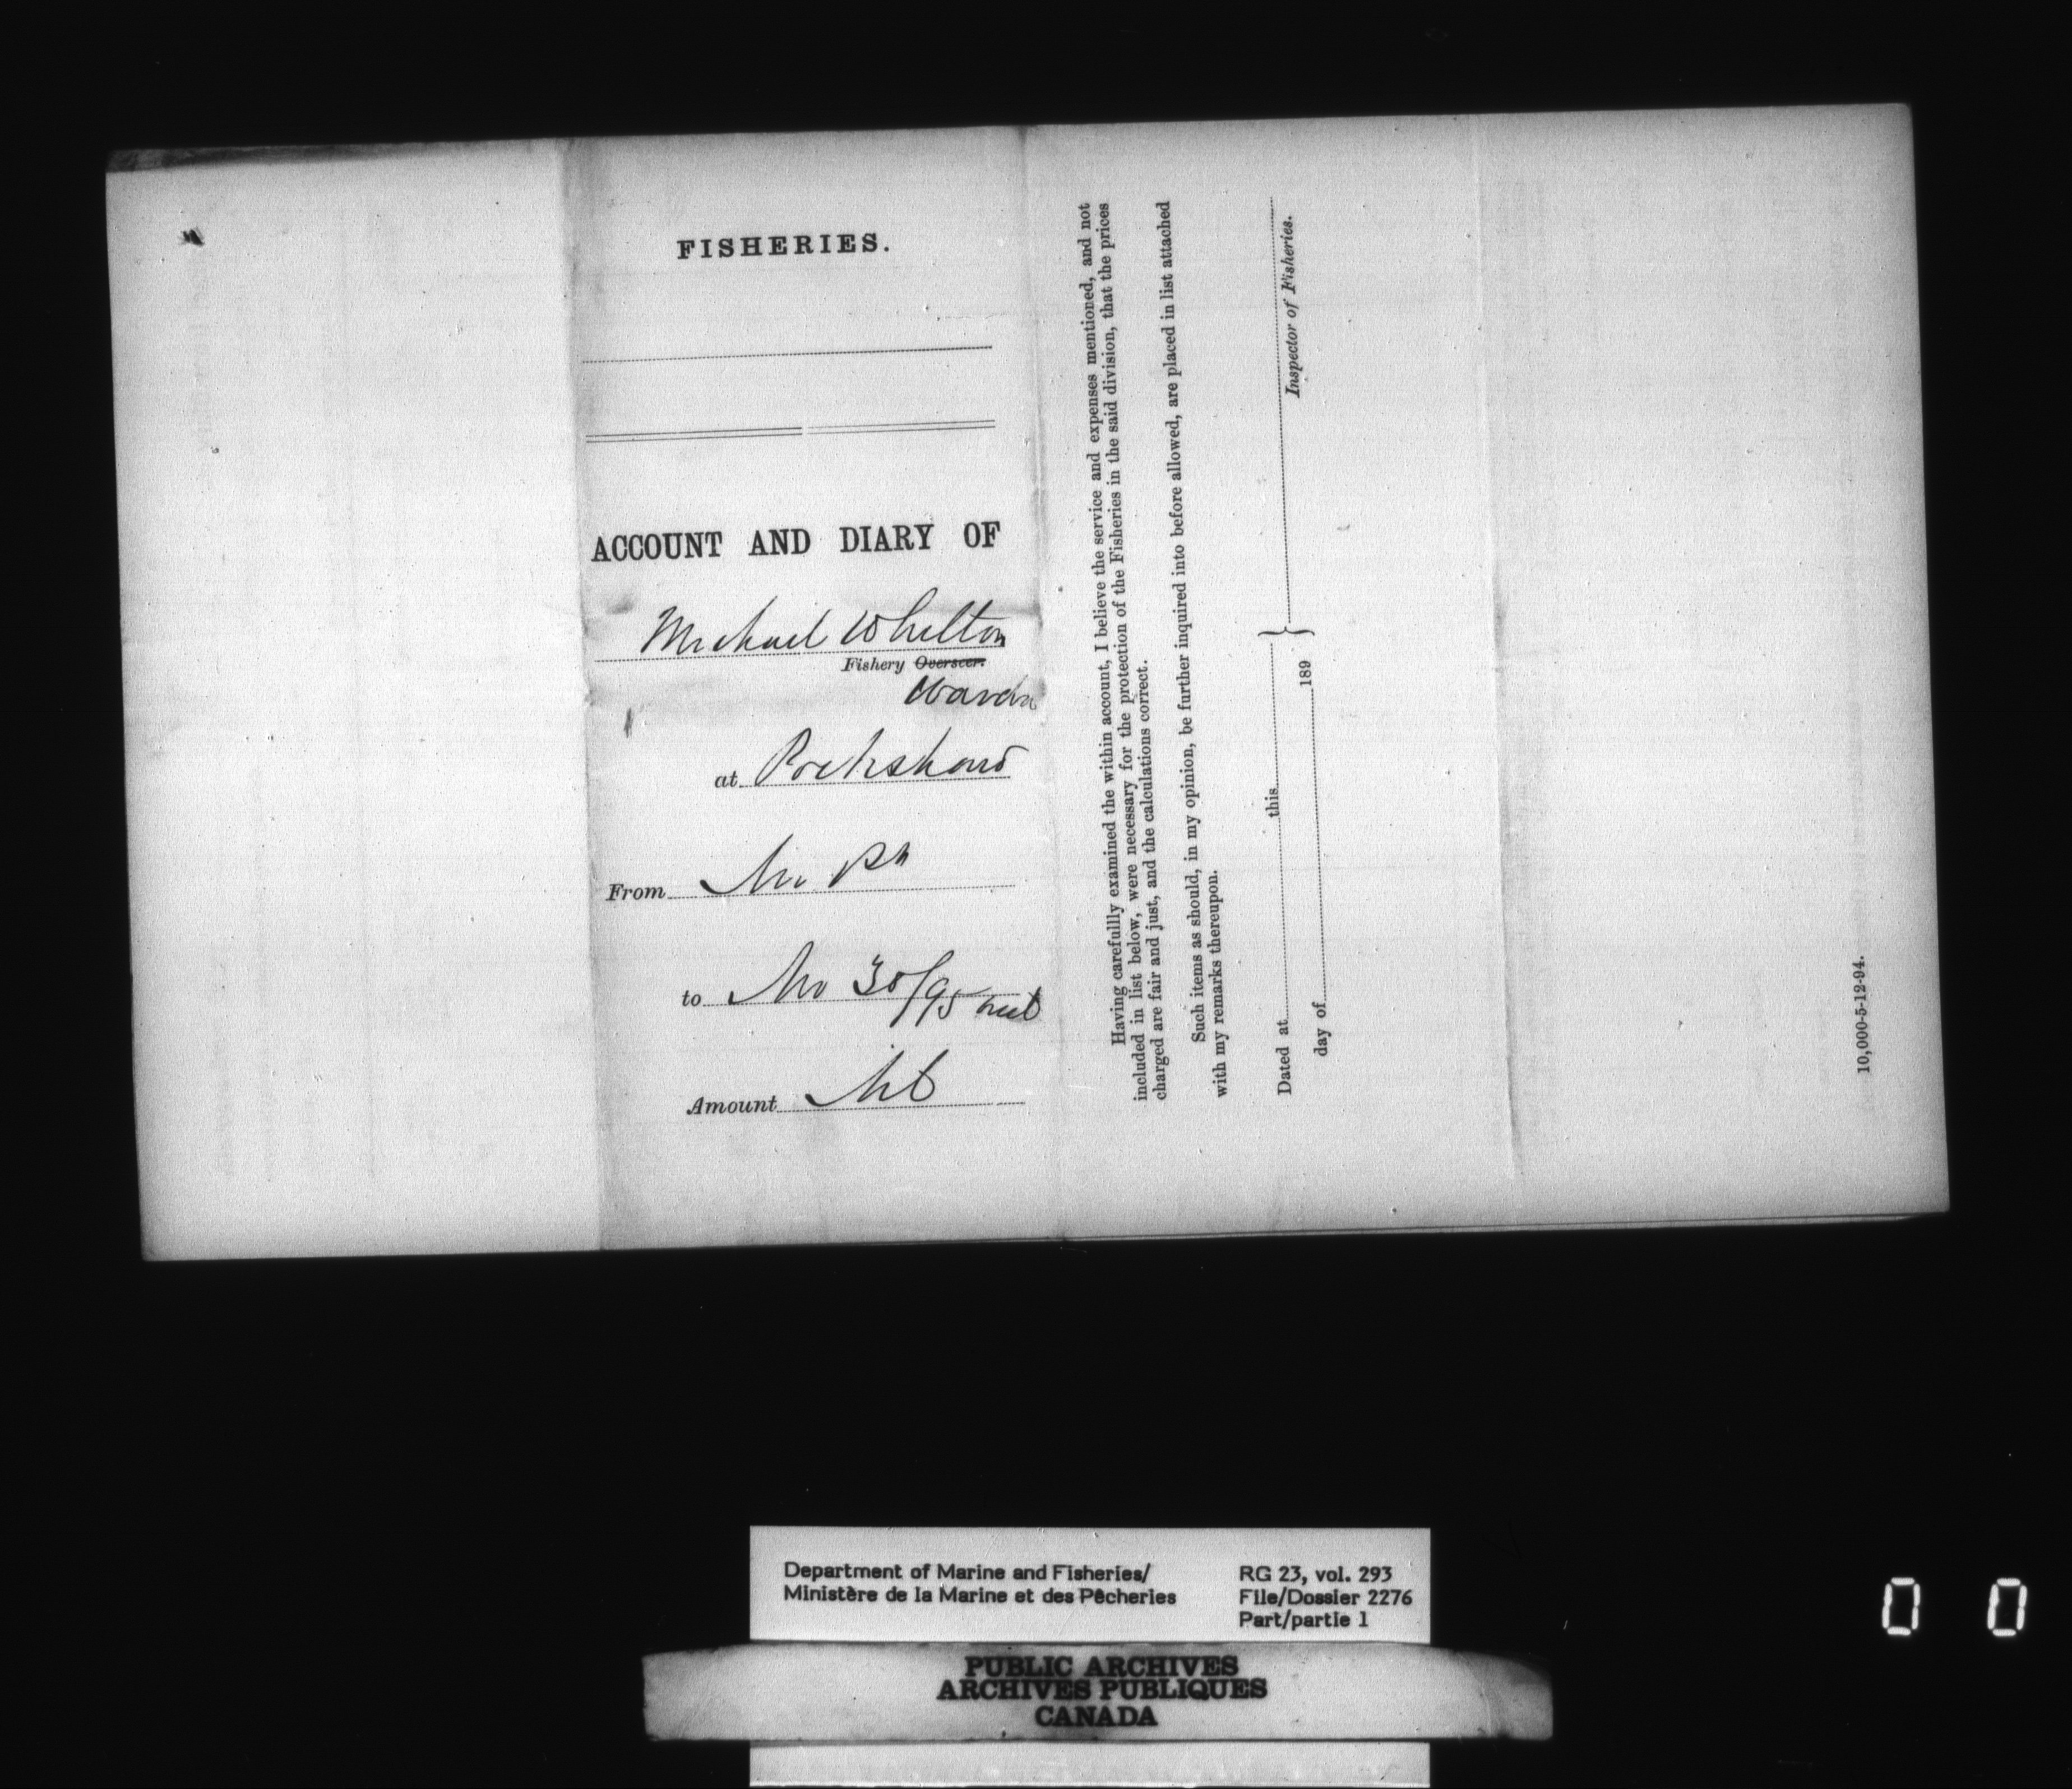 FISHERIES.
ACCOUNT AND DIARY OF
Michael Whelton
Fishery Overseer.
at
From
to 30/95
Amount
Having carefullly examined the within account, I believe the service and expenses mentioned, and not
included in list below, were necessary for the protection of the Fisheries in the said division, that the prices
charged are fair and just, and the calculations correct.
Such items as should, in my opinion, be further inquired into before allowed, are placed in list attached
with my remarks thereupon.
Dated at this
day of 189
Inspector of Fisheries.
10,000-5-12-94.
Department of Marine and Fisheries/
Ministère de la Marine et des Pêcheries
RG 23, vol. 293
File/Dossier 2276
Part/partie 1
PUBLIC ARCHIVES
ARCHIVES PUBLIQUES
CANADA
0 0